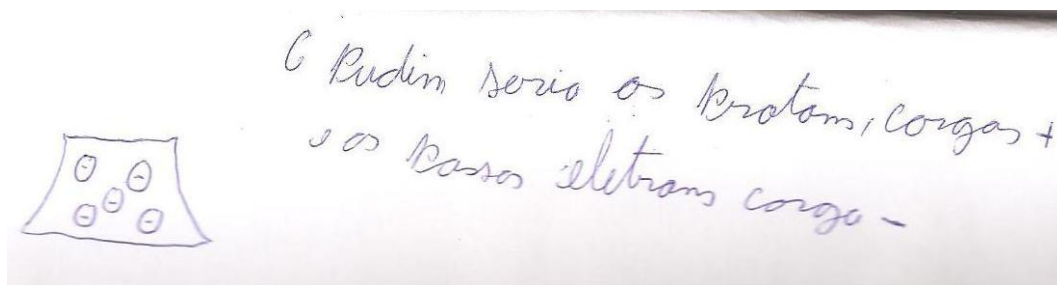 O Pudim seria os protons, cargas +
e os passas eletrons carga -